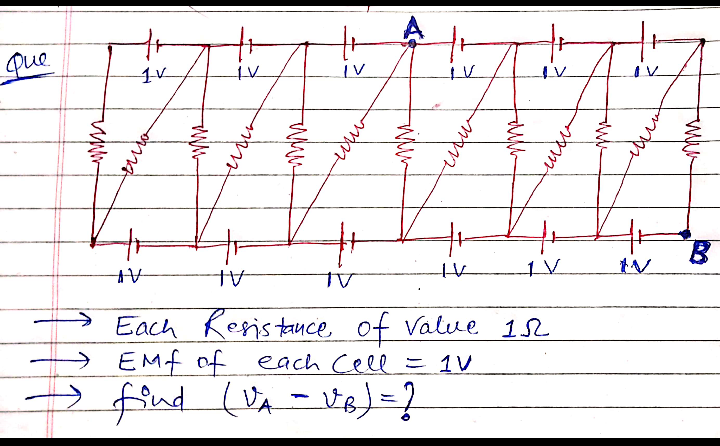 A
Que
1V 1V 1V 1V 1V 1V
1V 1V 1V 1V 1V 1V
B
→ Each Resistance of value 1Ω
→ EMf of each cell = 1V
→ find (VA - VB) = ?